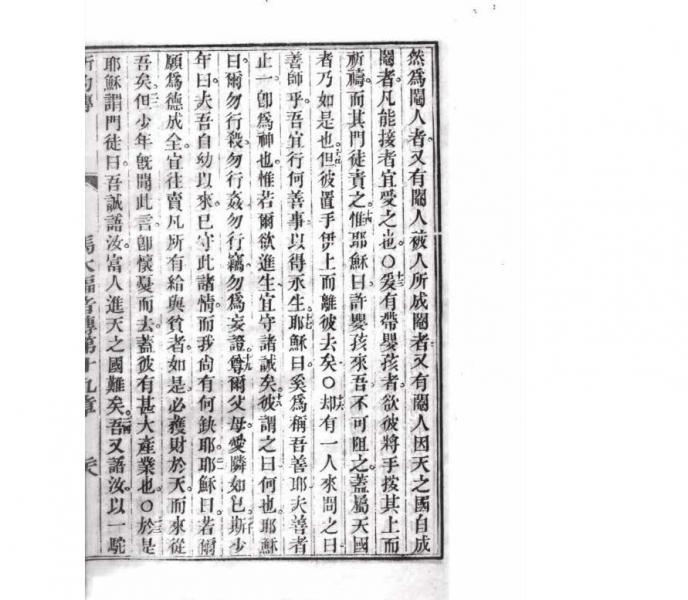 然為閹人者。又有閹人被人所成閹者。又有閹人因天之國自成
閹者。凡能接者宜愛之也。〇爰有帶嬰孩者。欲彼將手按其上而
祈禱。而其門徒責之。惟耶穌曰。許嬰孩來吾。不可阻之。蓋屬天國
者乃如是也。但彼置手伊上而離彼去矣。〇却有一人來問之曰
善師乎。吾宜行何善事以得永生。耶穌曰。奚為稱吾善耶。夫善者
止一。卽為神也。惟若爾欲進生。宜守諸誡矣。彼謂之曰。何也。耶穌
曰。爾勿行殺。勿行姦。勿行竊。勿為妄證。尊爾父母。愛隣如己。斯少
年曰。夫吾自幼以來。已守此諸情。而我尚有何缺耶。耶穌曰。若爾
願為德成全。宜往賣凡所有給與貧者。如是必獲財於天。而來從
吾矣。但少年旣聞此言。卽懷憂而去。蓋彼有甚大產業也。〇於是
耶穌謂門徒曰。吾誠語汝。富人進天之國難矣。吾又語汝。以一駝
馬太福音傳第十九章